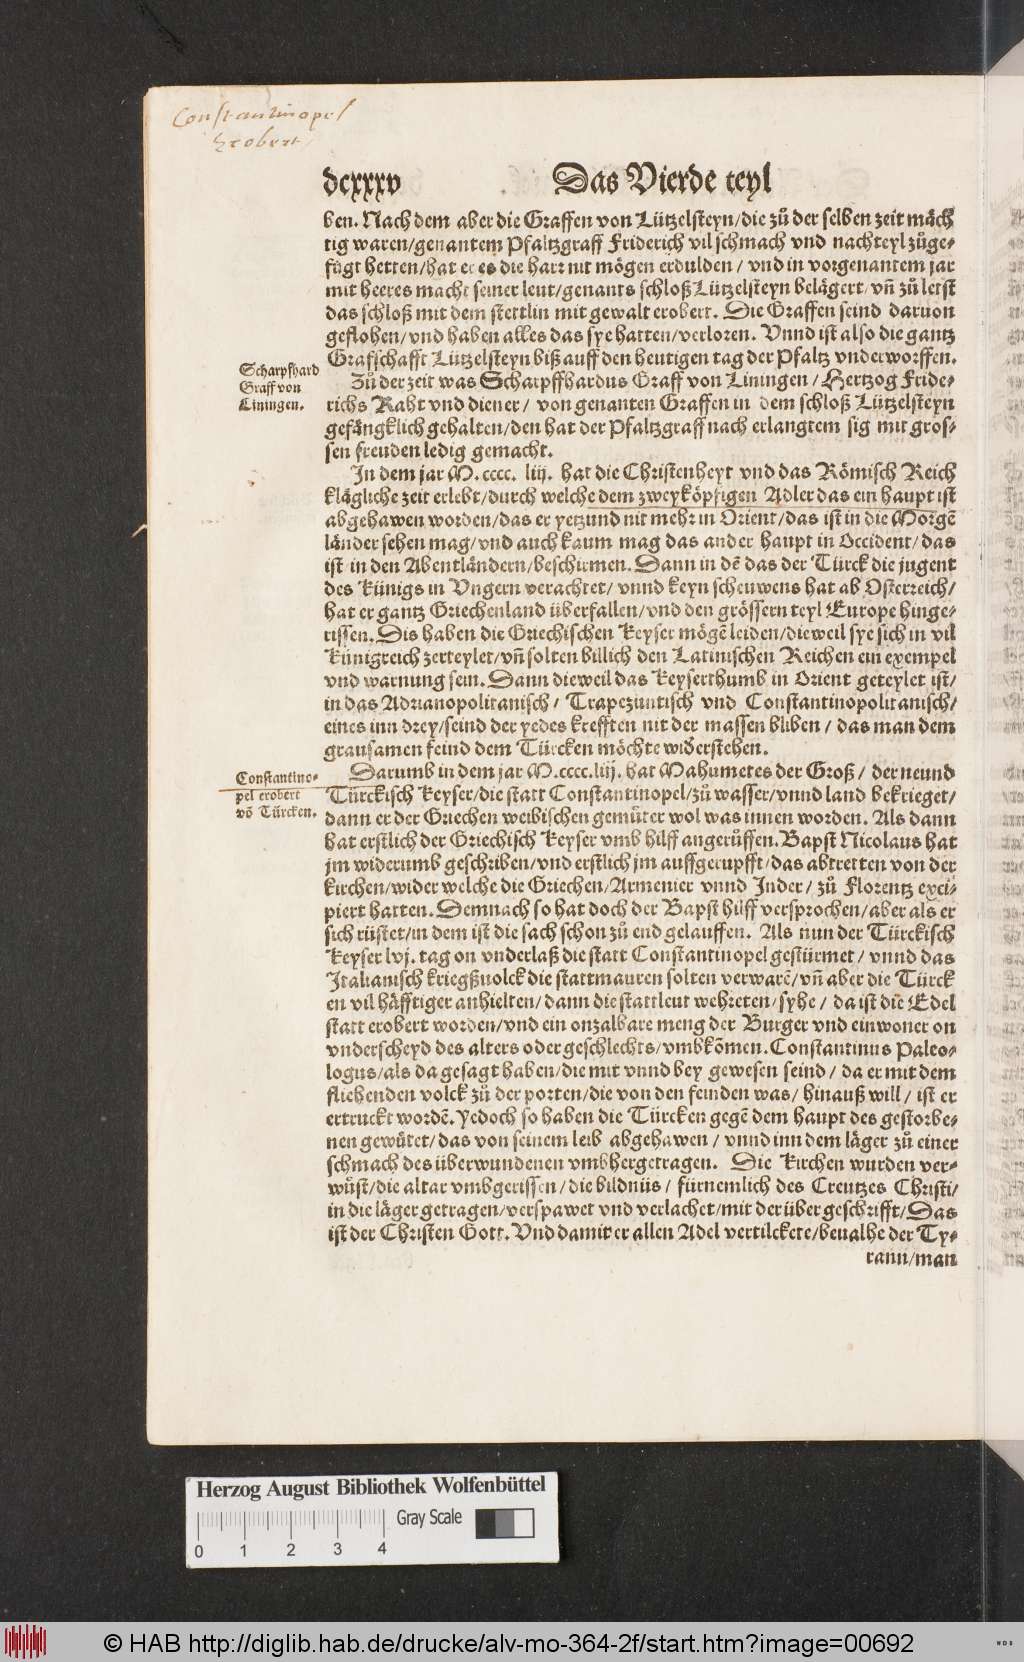 Constantinopel
Erobert
dcxxxv
Das Vierde teyl
ben. Nach dem aber die Graffen von Lützelsteyn/die zů der selben zeit mäch
tig waren/genantem Pfaltzgraff Friderich vil schmach vnd nachteyl zůge-
fůgt hetten/hat er es die harr nit mögen erdulden/ vnd in vorgenantem jar
mit heeres macht seiner leut/genants schloß Lützelsteyn belägert/vñ zů letst
das schloß mit dem stettlin mit gewalt erobert. Die Graffen seind daruon
geflohen/vnd haben alles das sye hatten/verloren. Vnnd ist also die gantz
Grafschafft Lützelsteyn biß auff den heutigen tag der Pfaltz vnderworffen.
Scharpfhard
Graff von
Liningen.
Zů der zeit was Scharpffhardus Graff von Liningen/Hertzog Fride-
richs Raht vnd diener/ von genanten Graffen in dem schloß Lützelsteyn
gefängklich gehalten/den hat der Pfaltzgraff nach erlangtem sig mit gros-
sen freuden ledig gemacht.
In dem jar M.cccc. liij. hat die Christenheyt vnd das Römisch Reich
klägliche zeit erlebt/durch welche dem zweyköpfigen Adler das ein haupt ist
abgehawen worden/das er yetzund nit mehr in Orient/das ist in die Morgẽ
länder sehen mag/vnd auch kaum mag das ander haupt in Occident/das
ist in den Abentländern/beschirmen. Dann in dẽ das der Türck die jugent
des Künigs in Vngern verachtet/vnnd keyn scheuwens hat ab Osterreich/
hat er gantz Griechenland überfallen/vnd den grössern teyl Europe hinge-
rissen. Dis haben die Griechischen Keyser mögẽ leiden/dieweil sye sich in vil
Künigreich zerteylet/vñ solten billich den Latinischen Reichen ein exempel
vnd warnung sein. Dann dieweil das Keyserthumb in Orient geteylet ist/
in das Adrianopolitanisch/ Trapezuntisch vnd Constantinopolitanisch/
eines inn drey/seind der yedes krefften nit der massen bliben/ das man dem
grausamen feind dem Türcken möchte widerstehen.
Constantino-
pel erobert
võ Türcken.
Darumb in dem jar M.cccc.liij. hat Mahumetes der Groß/ der neund
Türckisch Keyser/die statt Constantinopel/zů wasser/vnnd land bekrieget/
dann er der Griechen weibischen gemüter wol was innen worden. Als dann
hat erstlich der Griechisch Keyser vmb hilff angerůffen. Bapst Nicolaus hat
jm widerumb geschriben/vnd erstlich jm auffgerupfft/das abtretten von der
kirchen/wider welche die Griechen/Armenier vnnd Inder/ zů Florentz exci-
piert hatten. Demnach so hat doch der Bapst hilff versprochen/aber als er
sich rüstet/in dem ist die sach schon zů end gelauffen. Als nun der Türckisch
Keyser lvj. tag on vnderlaß die statt Constantinopel gestürmet/ vnnd das
Italianisch kriegßuolck die stattmauren solten verwarẽ/vñ aber die Türck
en vil häfftiger anhielten/dann die stattleut wehreten/syhe/ da ist die Edel
statt erobert worden/vnd ein onzalbare meng der Burger vnd einwoner on
vnderscheyd des alters oder geschlechts/vmbkõmen. Constantinus Paleo-
logus/als da gesagt haben/die mit vnnd bey gewesen seind/ da er mit dem
fliehenden volck zů der porten/die von den feinden was/ hinauß will/ ist er
ertruckt wordẽ. Yedoch so haben die Türcken gegẽ dem haupt des gestorbe-
nen gewütet/das von seinem leib abgehawen/ vnnd inn dem läger zů einer
schmach des überwundenen vmbhergetragen. Die Kirchen wurden ver-
wůst/die altar vmbgerissen/die bildnüs/ fürnemlich des Creutzes Christi/
in die läger getragen/verspawet vnd verlachet/mit der übergeschrifft/Das
ist der Christen Gott. Vnd damit er allen Adel vertilckete/beualhe der Ty-
rann/man
Herzog August Bibliothek Wolfenbüttel
Gray Scale
0 1 2 3 4
© HAB http://diglib.hab.de/drucke/alv-mo-364-2f/start.htm?image=00692